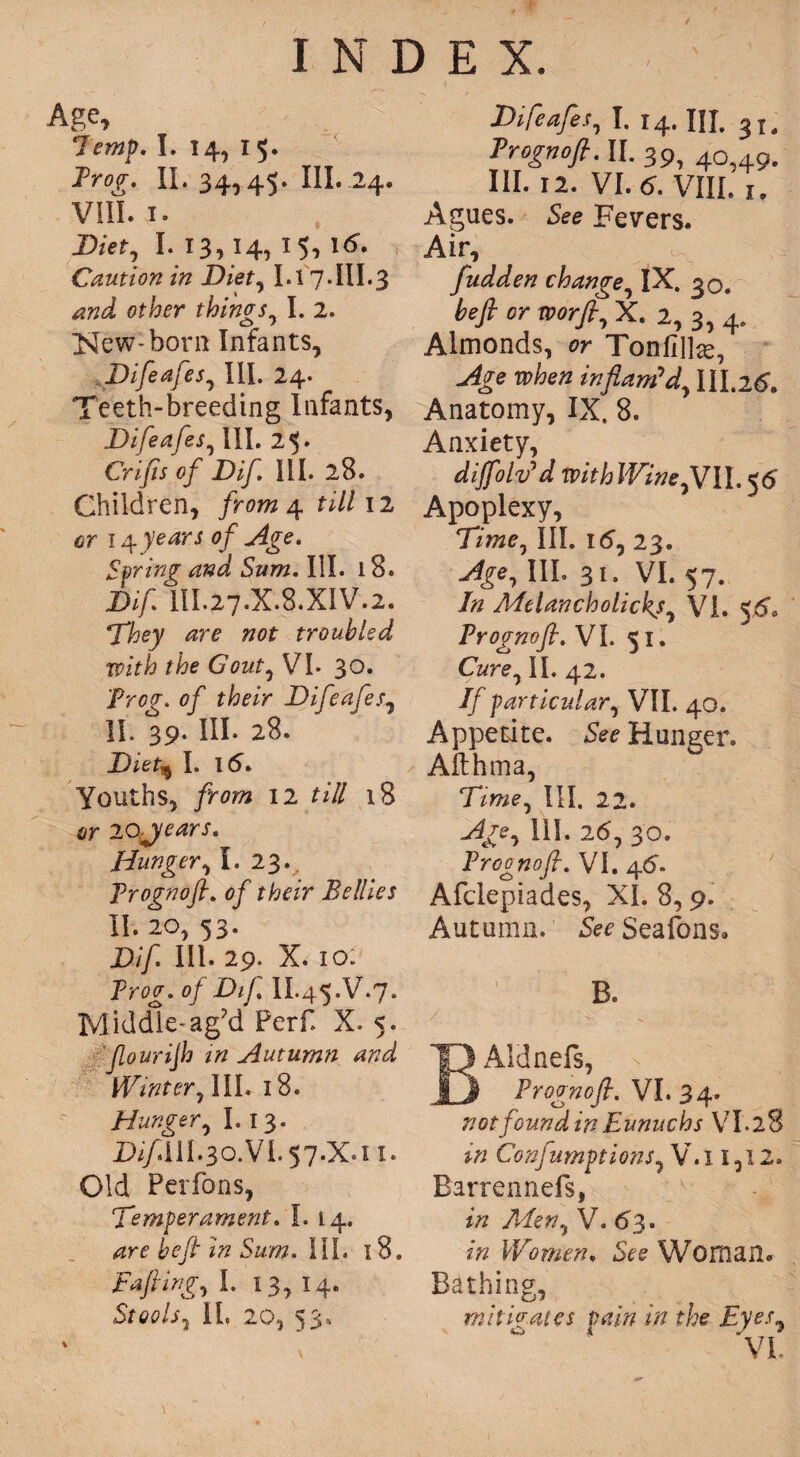 INDEX.
Age,
Temp. I. 14, 15.
Prog. II. 34, 45. III. 24.
VIII. 1.
Diet, I. 13, 14, 15, 16.
Caution in Diet, I.17.III.3
and other things, I. 2.
New-born Infants,
Diſeaſes, III. 24.
Teeth-breeding Infants,
Diſeaſes, III. 25.
Criſis of Diſ. III. 28.
Children, from 4 till 12
or 14 years of Age.
Spring and Sum. III. 18.
Diſ. III.27.X.8.XIV.2.
They are not troubled
with the Gout, VI. 30.
Prog. of their Diſeaſes,
II. 39. III. 28.
Diet, I. 16.
Youths, from 12 till 18
or 20 years.
Hunger, I. 23.
Prognoſt. of their Bellies
II. 20, 53.
Diſ. III. 29. X. 10.
Prog. of Diſ. II.45.V.7.
Middle-ag'd Perſ. X. 5.
flouriſh in Autumn and
Winter, III. 18.
Hunger, I. 13.
Diſ.III.30.VI.57.X.11.
Old Perſons,
Temperament. I. 14.
are beſt in Sum. III. 18.
Faſting, I. 13, 14.
Stools, II. 20, 53.
Diſeaſes, I. 14. III. 31.
Prognoſt. II. 39, 40,49.
III. 12. VI. 6. VIII. 1.
Agues. See Fevers.
Air,
ſudden change, IX. 30.
beſt or worſt, X. 2, 3, 4.
Almonds, or Tonſillæ,
Age when inflam'd, III.26.
Anatomy, IX. 8.
Anxiety,
diſſolv'd with Wine, VII. 56
Apoplexy,
Time, III. 16, 23.
Age, III. 31. VI. 57.
In Melancholicks, VI. 56.
Prognoſt. VI. 51.
Cure, II. 42.
If particular, VII. 40.
Appetite. See Hunger.
Aſthma,
Time, III. 22.
Age, III. 26, 30.
Prognoſt. VI. 46.
Aſclepiades, XI. 8, 9.
Autumn. See Seaſons.
B.
BAldneſs,
Prognoſt. VI. 34.
not found in Eunuchs VI.28
in Conſumptions, V.11,12.
Barrenneſs,
in Men, V. 63.
in Women. See Woman.
Bathing,
mitigates pain in the Eyes,
VI.